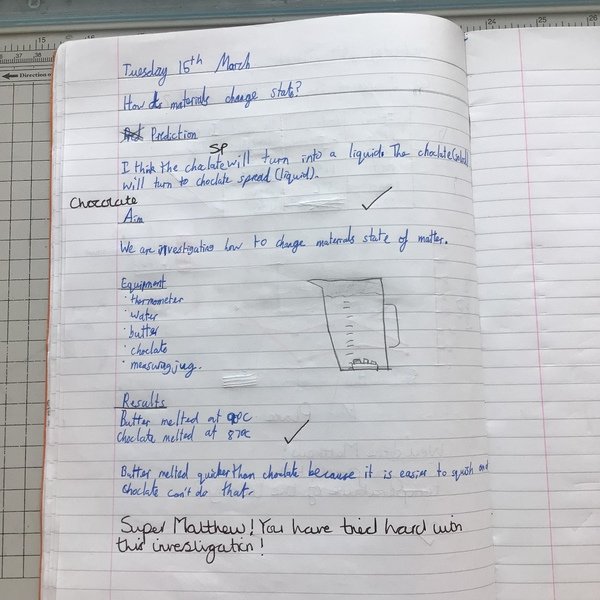 24
25
26
36
37
38
Direction o
Tuesday 15th March
How do materials change state?
Prediction
SP
I think the choclate will turn into a liquid. The choclate (solid)
will turn to choclate spread (liquid).
Chocolate
Aim
We are investigating how to change materials state of matter.
Equipment
· thermometer
· water
· butter
· choclate
· measuring jug.
Results
Butter melted at
Choclate melted at 87°C
Butter melted quicker than choclate because it is easier to squish and
choclate can't do that.
Super Matthew! You have tried hard with
this investigation!